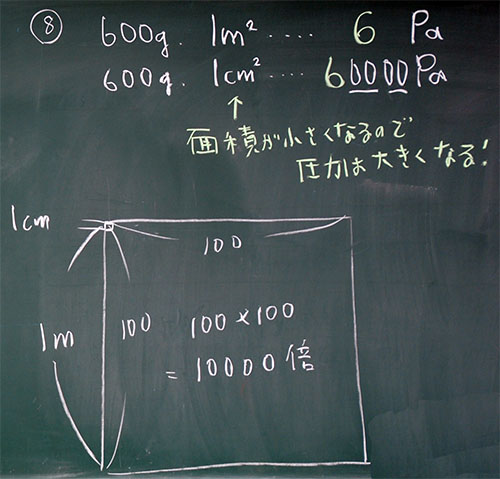 ⑧ 600g. 1m² ‥‥ 6 Pa
600g. 1cm² ‥‥ 60000Pa
↑
面積が小さくなるので
圧力は大きくなる!
1cm
100
1m
100
100×100
= 10000倍